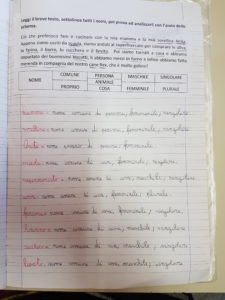 Leggi il breve testo, sottolinea tutti i nomi, poi prova ad analizzarli con l'aiuto dello
schema.
Ciò che preferisco fare è cucinare con la mia mamma e la mia sorellina Anita.
siamo andate al supermercato per comprare le olive,
la farina, il burro, lo zucchero e il lievito. Poi siamo tornate a casa e abbiamo
impastato dei buonissimi biscotti, li abbiamo messi in forno e infine abbiamo fatto
merenda in compagnia del nostro cane Rex, che è molto goloso!
NOME COMUNE PERSONA MASCHILE SINGOLARE
ANIMALE
PROPRIO COSA FEMMINILE PLURALE
mamma = nome comune di persona, femminile, singolare.
sorellina = nome comune di persona, femminile, singolare.
Anita = nome proprio di persona, femminile, singolare.
nome comune di cosa, femminile, singolare.
supermercato = nome comune di cosa, maschile, singolare.
olive = nome comune di cosa, femminile, plurale.
farina = nome comune di cosa, femminile, singolare.
burro = nome comune di cosa, maschile, singolare.
zucchero = nome comune di cosa, maschile, singolare.
lievito = nome comune di cosa, maschile, singolare.